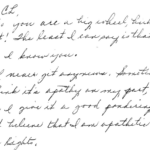 Ch,
you are a big wheel, huh
! The least I can say is tha
I know you.
I never get any news. Somet
ink it's apathy on my part,
I give it a good pondering
I believe that I am apathetic